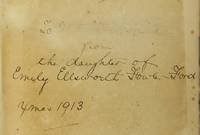 from
the daughter of
Emily Ellsworth Fowler-Ford
Xmas 1913